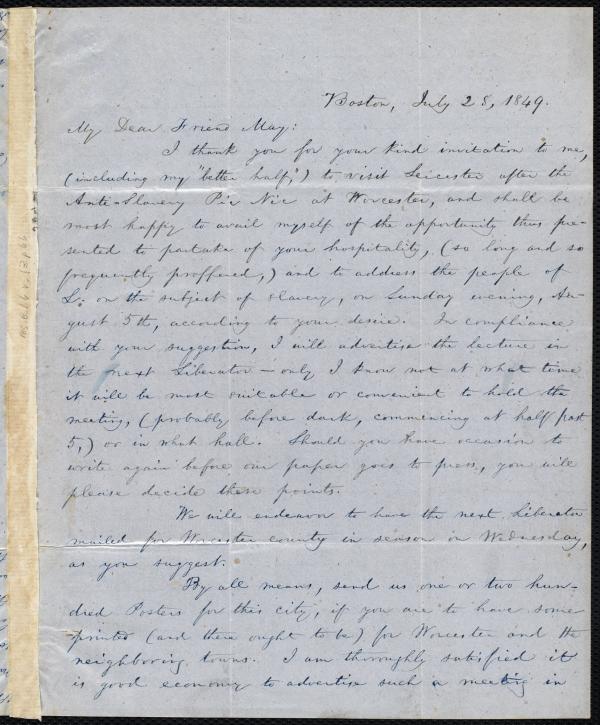 Boston, July 28, 1849.
My Dear Friend May:
I thank you for your kind invitation to me,
(including my "better half,") to visit Leicester after the
Anti-Slavery Pic Nic at Worcester, and shall be
most happy to avail myself of the opportunity thus pre-
sented to partake of your hospitality, (so long and so
frequently proffered,) and to address the people of
L. on the subject of slavery, on Sunday evening, Au-
gust 5th, according to your desire. In compliance
with your suggestion, I will advertise the lecture in
the next Liberator — only I know not at what time
it will be most suitable or convenient to hold the
meeting, (probably before dark, commencing at half past
5,) or in what hall. Should you have occasion to
write again before our paper goes to press, you will
please decide these points.
We will endeavor to have the next Liberator
mailed for Worcester county in season on Wednesday,
as you suggest.
By all means, send us one or two hun-
dred Posters for this city, if you are to have some
printed (and there ought to be) for Worcester and the
neighboring towns. I am thoroughly satisfied it
is good economy to advertise such a meeting in